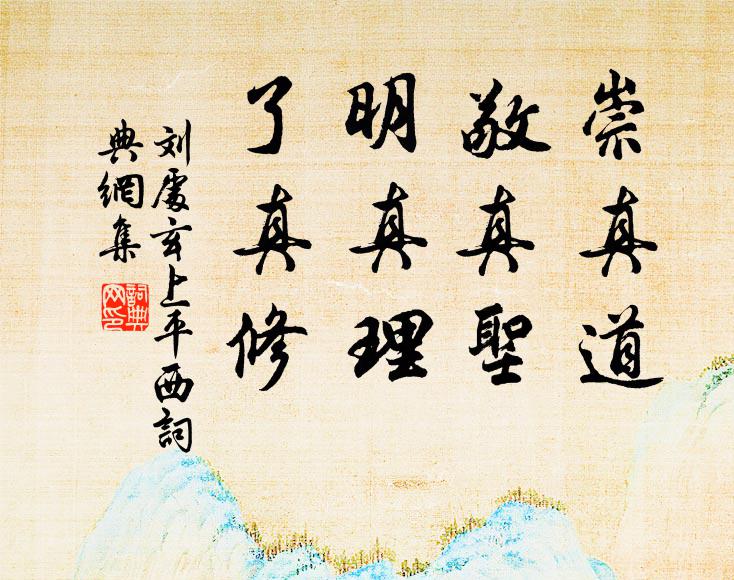 崇真道
敬真聖
明真理
了真修
刘處玄上平西詞
典網集
詞典
网印